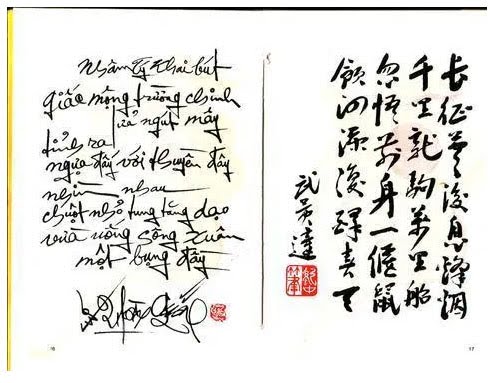 Nhâm Tý Khai bút
giấc mộng trường chinh
vừa ngút mây
tỉnh ra
ngựa đấy với thuyền đây
nhìn nhau
chuột nhỏ tung tăng dạo
vừa uống sông xuân
một bụng đầy
16
長征夢後息烽烟
千里龍駒萬里船
忽悟前身一偃鼠
飲河滿腹 春天
武 達
17